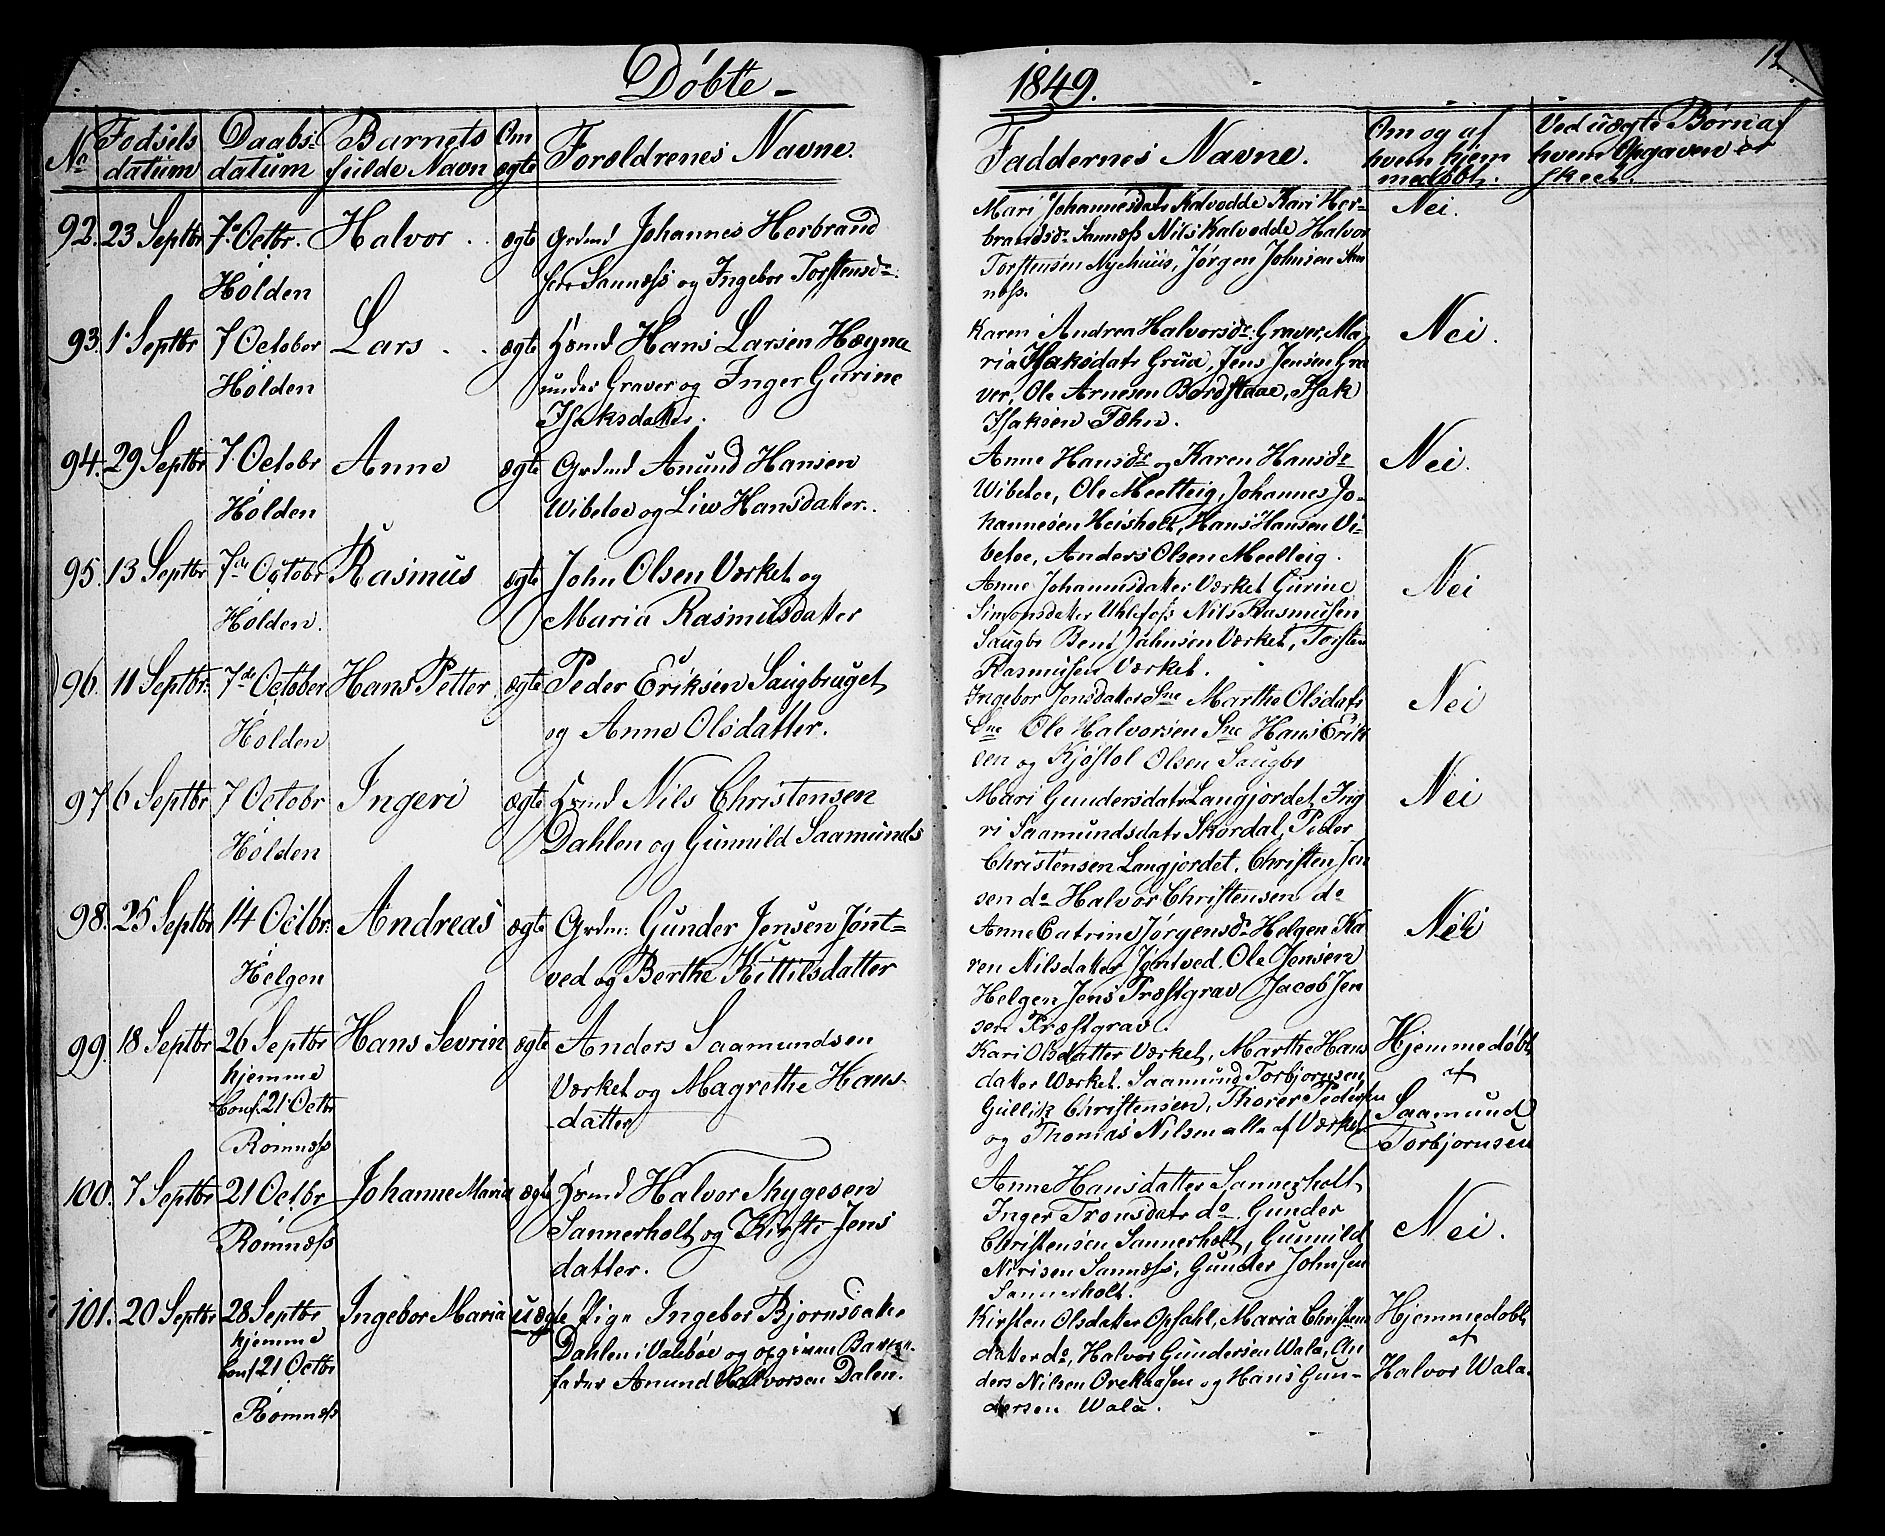 Döbte
1849.
12
No
Födsels
datum
Daabs-
datum
Barnets
fulde Navn
Om
ægte
Forældrenes Navne.
Faddernes Navne.
Om og af
hvem hjem
medöbt.
Ved uægte Börn af
hvem Opgaven er
skeet.
92. 23 Septbr 7de Octbr. Halvor ægte Grdmd Johannes Herbrand
Holden
Sannæss og Ingebor Torstensdr.
Mari Johannesdatr Kalvodde Kari Her-
brandsdr Sannæss Nils Kalvodde Halvor
Torstensen Nyehuus, Jörgen Johnsen San
næss.
Nei.
93. 1 Septbr 7 October Lars ægte Hsmd Hans Larsen Hægna
Holden under Graver og Inger Gurine
Isaksdatter.
Karen Andrea Halvorsdr. Graver, Ma-
ria Isaksdatr Grua, Jens Jensen Gra
ver, Ole Arnesen Bordstaae, Isak
Isaksen Tæhn.
Nei.
94. 29 Septbr 7 Octobr Anne ægte Grdmd Anund Hansen
Holden Wibetoe og Liw Hansdatter.
Anne Hansdr og Karen Hansdr
Wibetoe, Ole Meelteig, Johannes Jo-
hannesen Heisholt, Hans Hansen Vi-
betoe, Anders Olsen Meelteig.
Nei.
95. 13 Septbr 7de Octobr Rasmus ægte John Olsen Værket og
Holden. Maria Rasmusdatter
Anne Johannisdatter Værket Gurine
Simonsdatter Uhlefos Nils Rasmusen
Saugbr Bent Jahnsen Værket, Torsten
Rasmusen Værket.
Nei
96. 11 Septbr. 7de October Hans Petter ægte Peder Eriksen Saugbruget
Holden og Anne Olsdatter.
Ingebor Jensdatter Sne Marthe Olsdatr
Sne Ole Halvorsen Sne Hans Erik
sen og Kjöstol Olsen Saugbr
Nei
97 6 Septbr 7 Octobr Ingeri ægte Hsmd Nils Christensen
Holden Dahlen og Gunnild Saamunds
Mari Gundersdatr Langjordet, Ing
ri Saamundsdatr Skordal, Peder
Christensen Langjordet, Christen Jen
sen do Halvor Christensen do
Nei
98. 25 Septbr 14 Octbr. Andreas ægte Grdm: Gunder Jensen Jönt-
Helgen ved og Berthe Kittilsdatter
Anne Catrine Jörgensdr Helgen Ka
ren Nilsdatter Jöntved, Ole Jensen
Helgen Jens Præstgrav Jacob Jen
sen Præstgrav.
Nei
99. 18 Septbr 26 Septbr Hans Sevrin ægte Anders Saamundsen
hjemme Værket og Magrethe Hans-
Conf. 21 Octbr datter
Romnæss
Kari Olsdatter Værket, Marthe Hans
datter Værket. Saamund Torbjornsen
Gullik Christensen, Thorer Pedersen
og Thomas Nilsen alle af Værket
Hjemmedöbt
af
Saamund
Torbjornsen
100. 7 Septbr 21 Octbr Johanne Maria ægte Hsmd Halvor Thygesen
Romnæss Sannerholt og Kirsti Jens
datter.
Anne Hansdatter Sannerholt,
Inger Tronsdatr do. Gunder
Christensen Sannerholt, Gunnild
Sannæss, Gunder Johnsen
Sannerholt.
Nei.
101. 20 Septbr 28 Septbr Ingebor Maria uægte Pige Ingebor Bjornsdatter
hjemme Dahlen i Valeböe og opgiven Barne-
Conf 21 Octbr fader Anund Halvorsen Dalen.
Romnæss
Kirsten Olsdatter Opsahl, Maria Christens
datter do, Halvor Gundersen Wala, An
ders Nilsen Orekaasen og Hans Gun-
dersen Wala.
Hjemmedöbt
af
Halvor Wala.